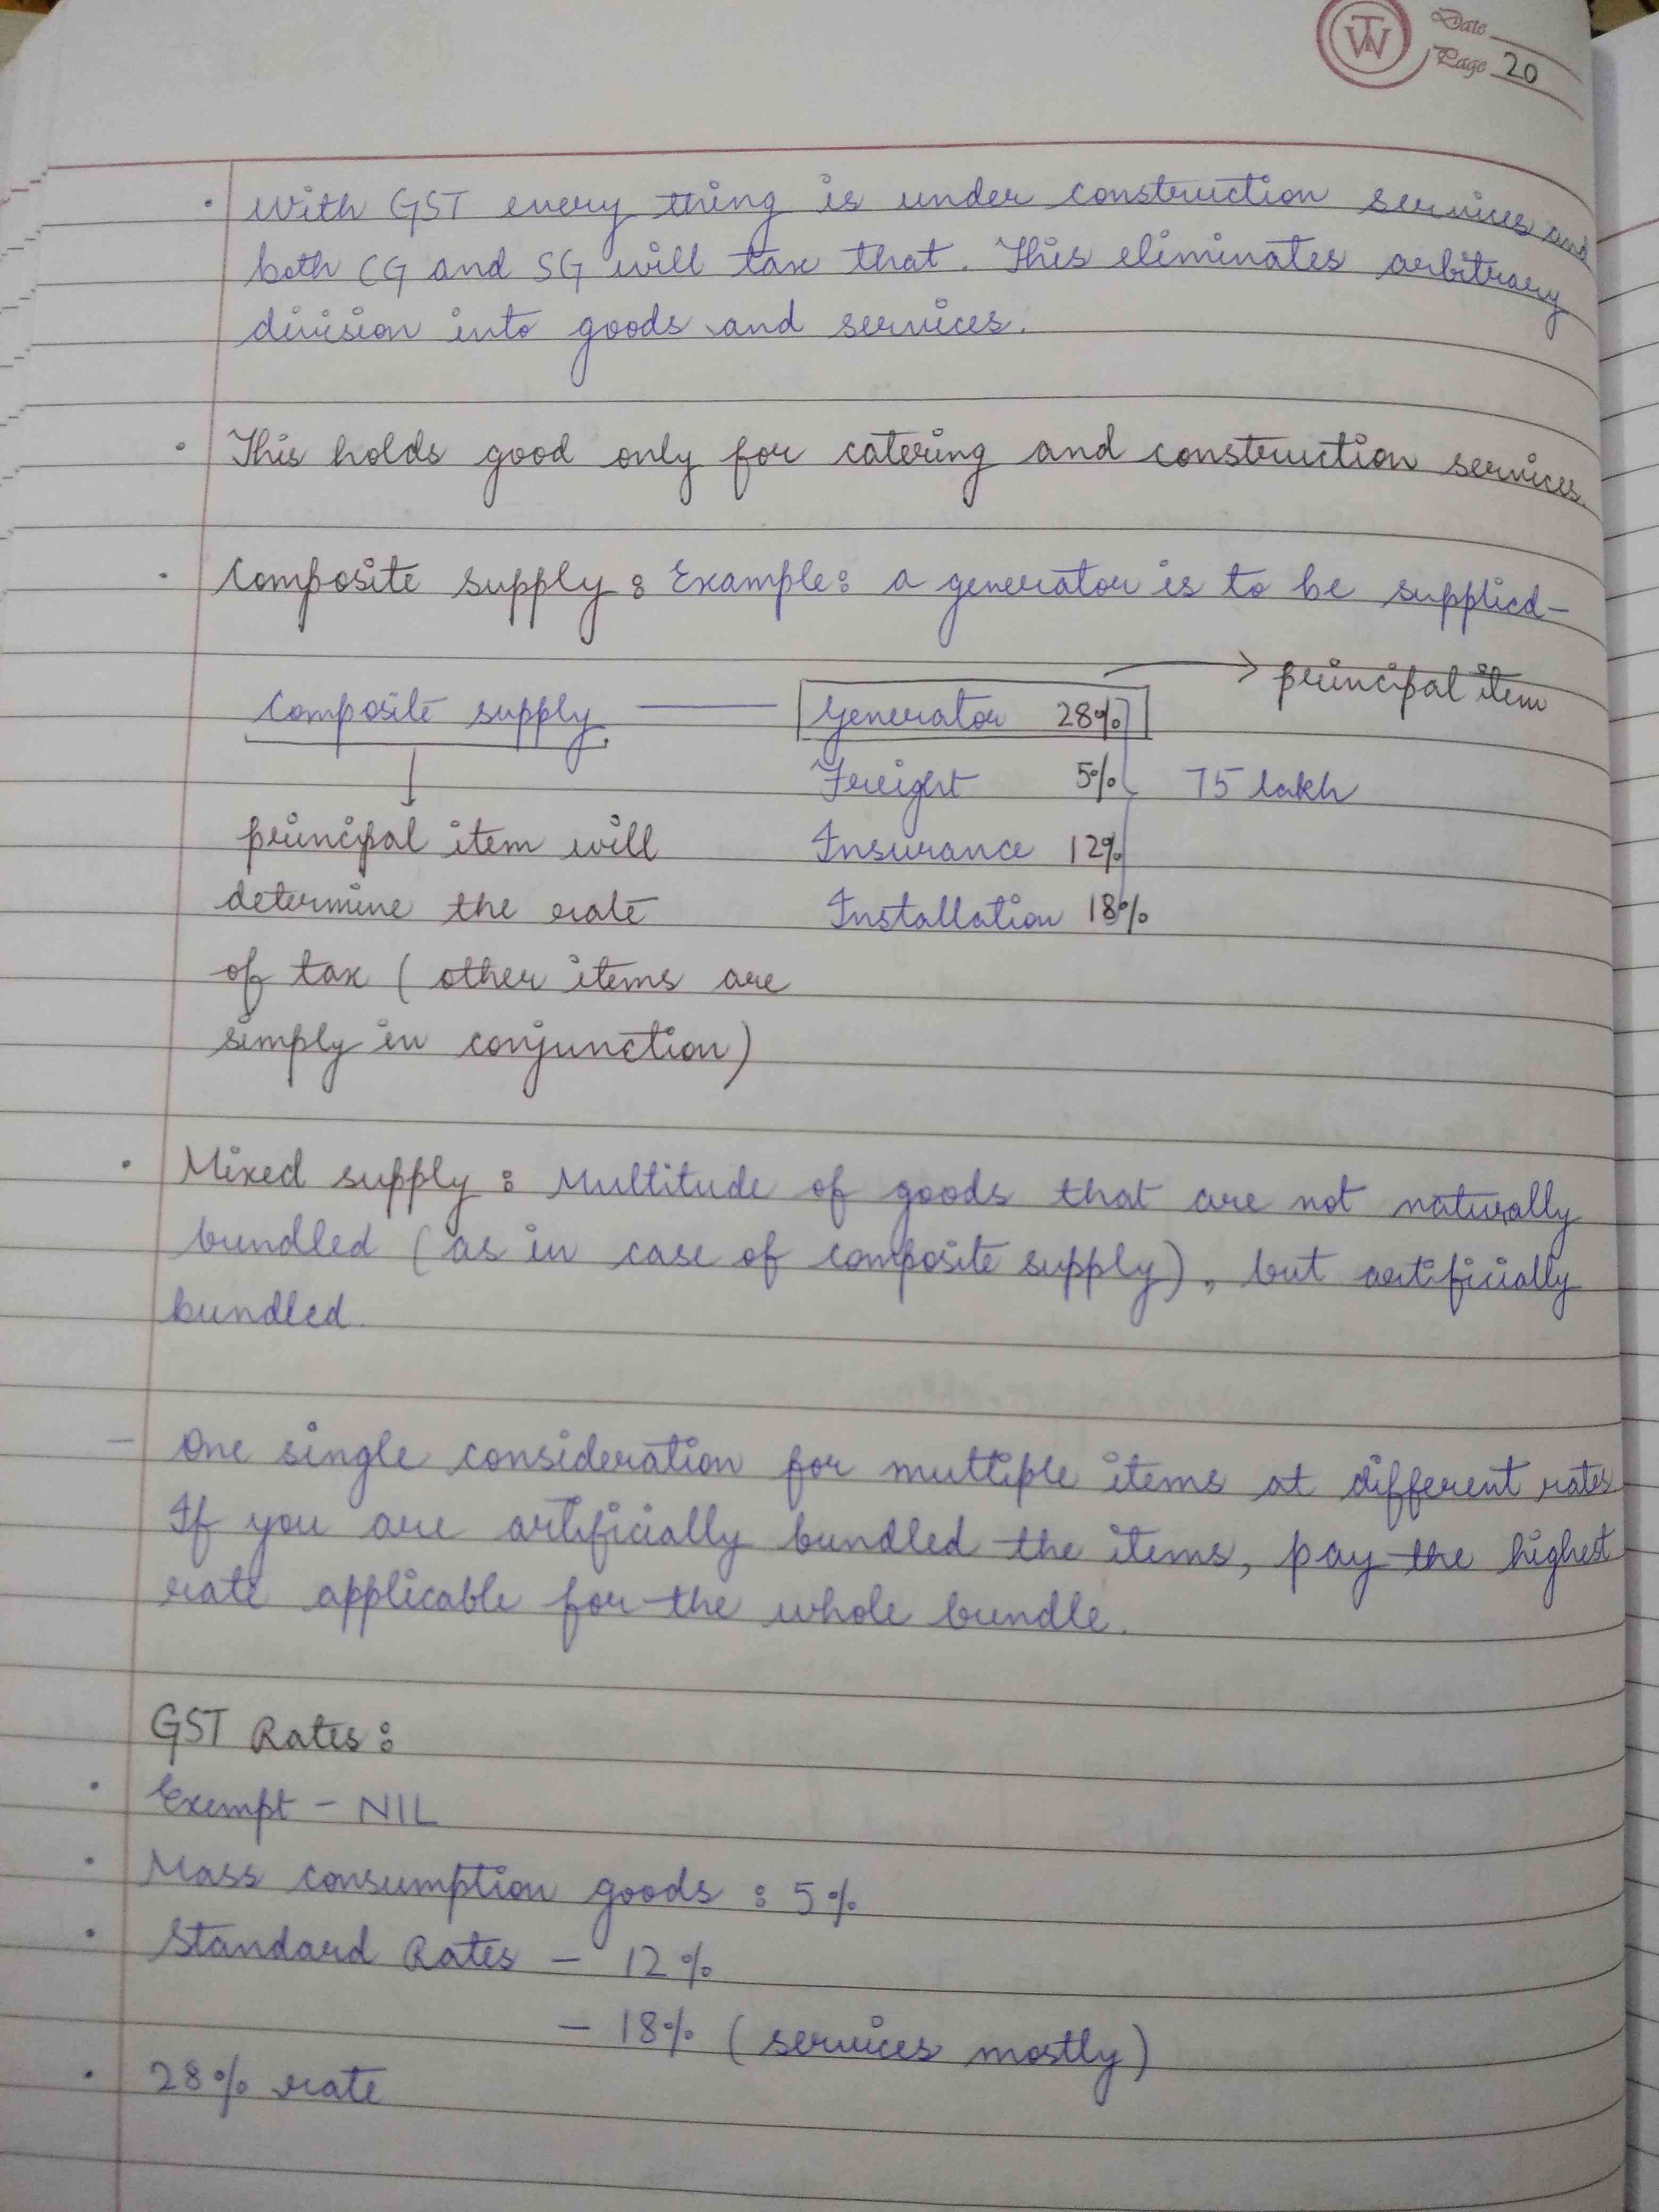 Date
Page 20
• With GST every thing is under construction services and
both CG and SG will tax that. This eliminates arbitrary
division into goods and services.
• This holds good only for catering and construction services.
• Composite supply : Example: a generator is to be supplied-
→ principal item
Composite supply — Generator 28%
Freight 5% 75 lakh
principal item will Insurance 12%
determine the rate Installation 18%
of tax (other items are
simply in conjunction)
• Mixed supply : Multitude of goods that are not naturally
bundled (as in case of composite supply), but artificially
bundled.
- One single consideration for multiple items at different rates
If you are artificially bundled the items, pay the highest
rate applicable for the whole bundle.
GST Rates :
• Exempt - NIL
• Mass consumption goods : 5%
• Standard Rates - 12%
- 18% (services mostly)
• 28% rate